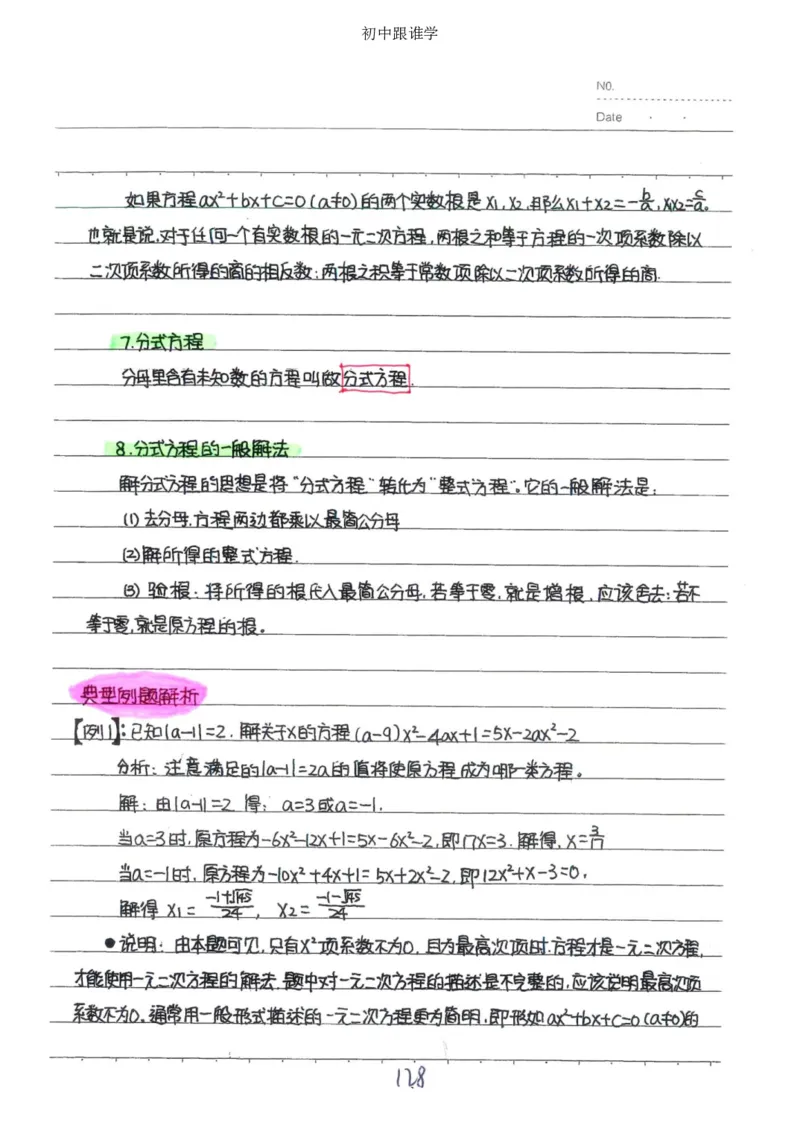 初中跟谁学
NO.
Date
如果方程ax²+bx+c=0(a≠0)的两个实数根是x₁,x₂,那么x₁+x₂=-b/a,x₁x₂=c/a。
也就是说,对于任何一个有实数根的一元二次方程,两根之和等于方程的一次项系数除以
二次项系数所得的商的相反数;两根之积等于常数项除以二次项系数所得的商.
7.分式方程
分母里含有未知数的方程叫做分式方程.
8.分式方程的一般解法
解分式方程的思想是将“分式方程”转化为“整式方程”。它的一般解法是:
(1)去分母,方程两边都乘以最简公分母
(2)解所得的整式方程.
(3) 验根:将所得的根代入最简公分母,若等于零,就是增根,应该舍去;若不
等于零,就是原方程的根。
典型例题解析
【例1】:已知|a-1|=2.解关于x的方程(a-9)x²-4ax+1=5x-2ax²-2
分析:注意满足的|a-1|=2a的值将使原方程成为哪一类方程。
解:由|a-1|=2 得:a=3或a=-1.
当a=3时,原方程为-6x²-12x+1=5x-6x²-2,即17x=3.解得,x=3/17
当a=-1时,原方程为-10x²+4x+1=5x+2x²-2,即12x²+x-3=0.
解得 x₁=(-1+√145)/24, x₂=(-1-√145)/24
●说明:由本题可见,只有x²项系数不为0,且为最高次项时,方程才是一元二次方程,
才能使用一元二次方程的解法.题中对一元二次方程的描述是不完整的,应该说明最高次项
系数不为0。通常用一般形式描述的一元二次方程更为简明,即形如ax²+bx+c=0(a≠0)的
128